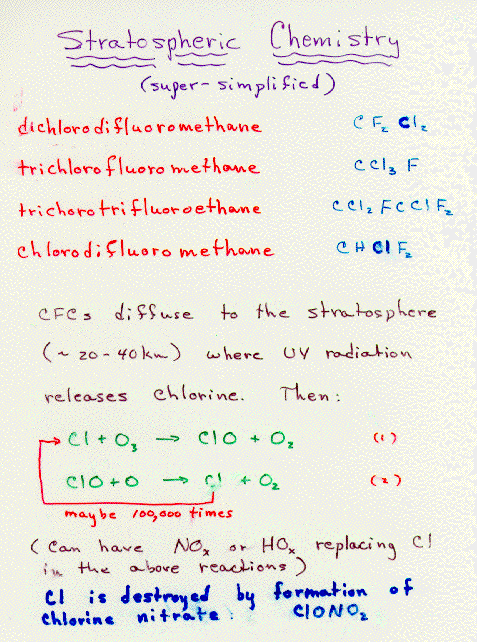 Stratospheric Chemistry
(super-simplified)
dichlorodifluoromethane CF₂Cl₂
trichlorofluoromethane CCl₃F
trichorotrifluoroethane CCl₂FCClF₂
chlorodifluoromethane CHClF₂
CFCs diffuse to the stratosphere
(~20-40km) where UV radiation
releases chlorine. Then:
Cl + O₃ → ClO + O₂ (1)
ClO + O → Cl + O₂ (2)
maybe 100,000 times
(Can have NOₓ or HOₓ replacing Cl
in the above reactions)
Cl is destroyed by formation of
chlorine nitrate: ClONO₂